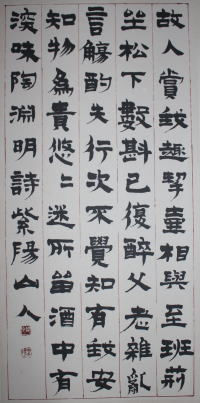 故人賞我趣挈壺相與至班荊
坐松下數斟已復醉父老雜亂
言觴酌失行次不覺知有我安
知物爲貴悠〻迷所留酒中有
深味陶淵明詩紫陽山人